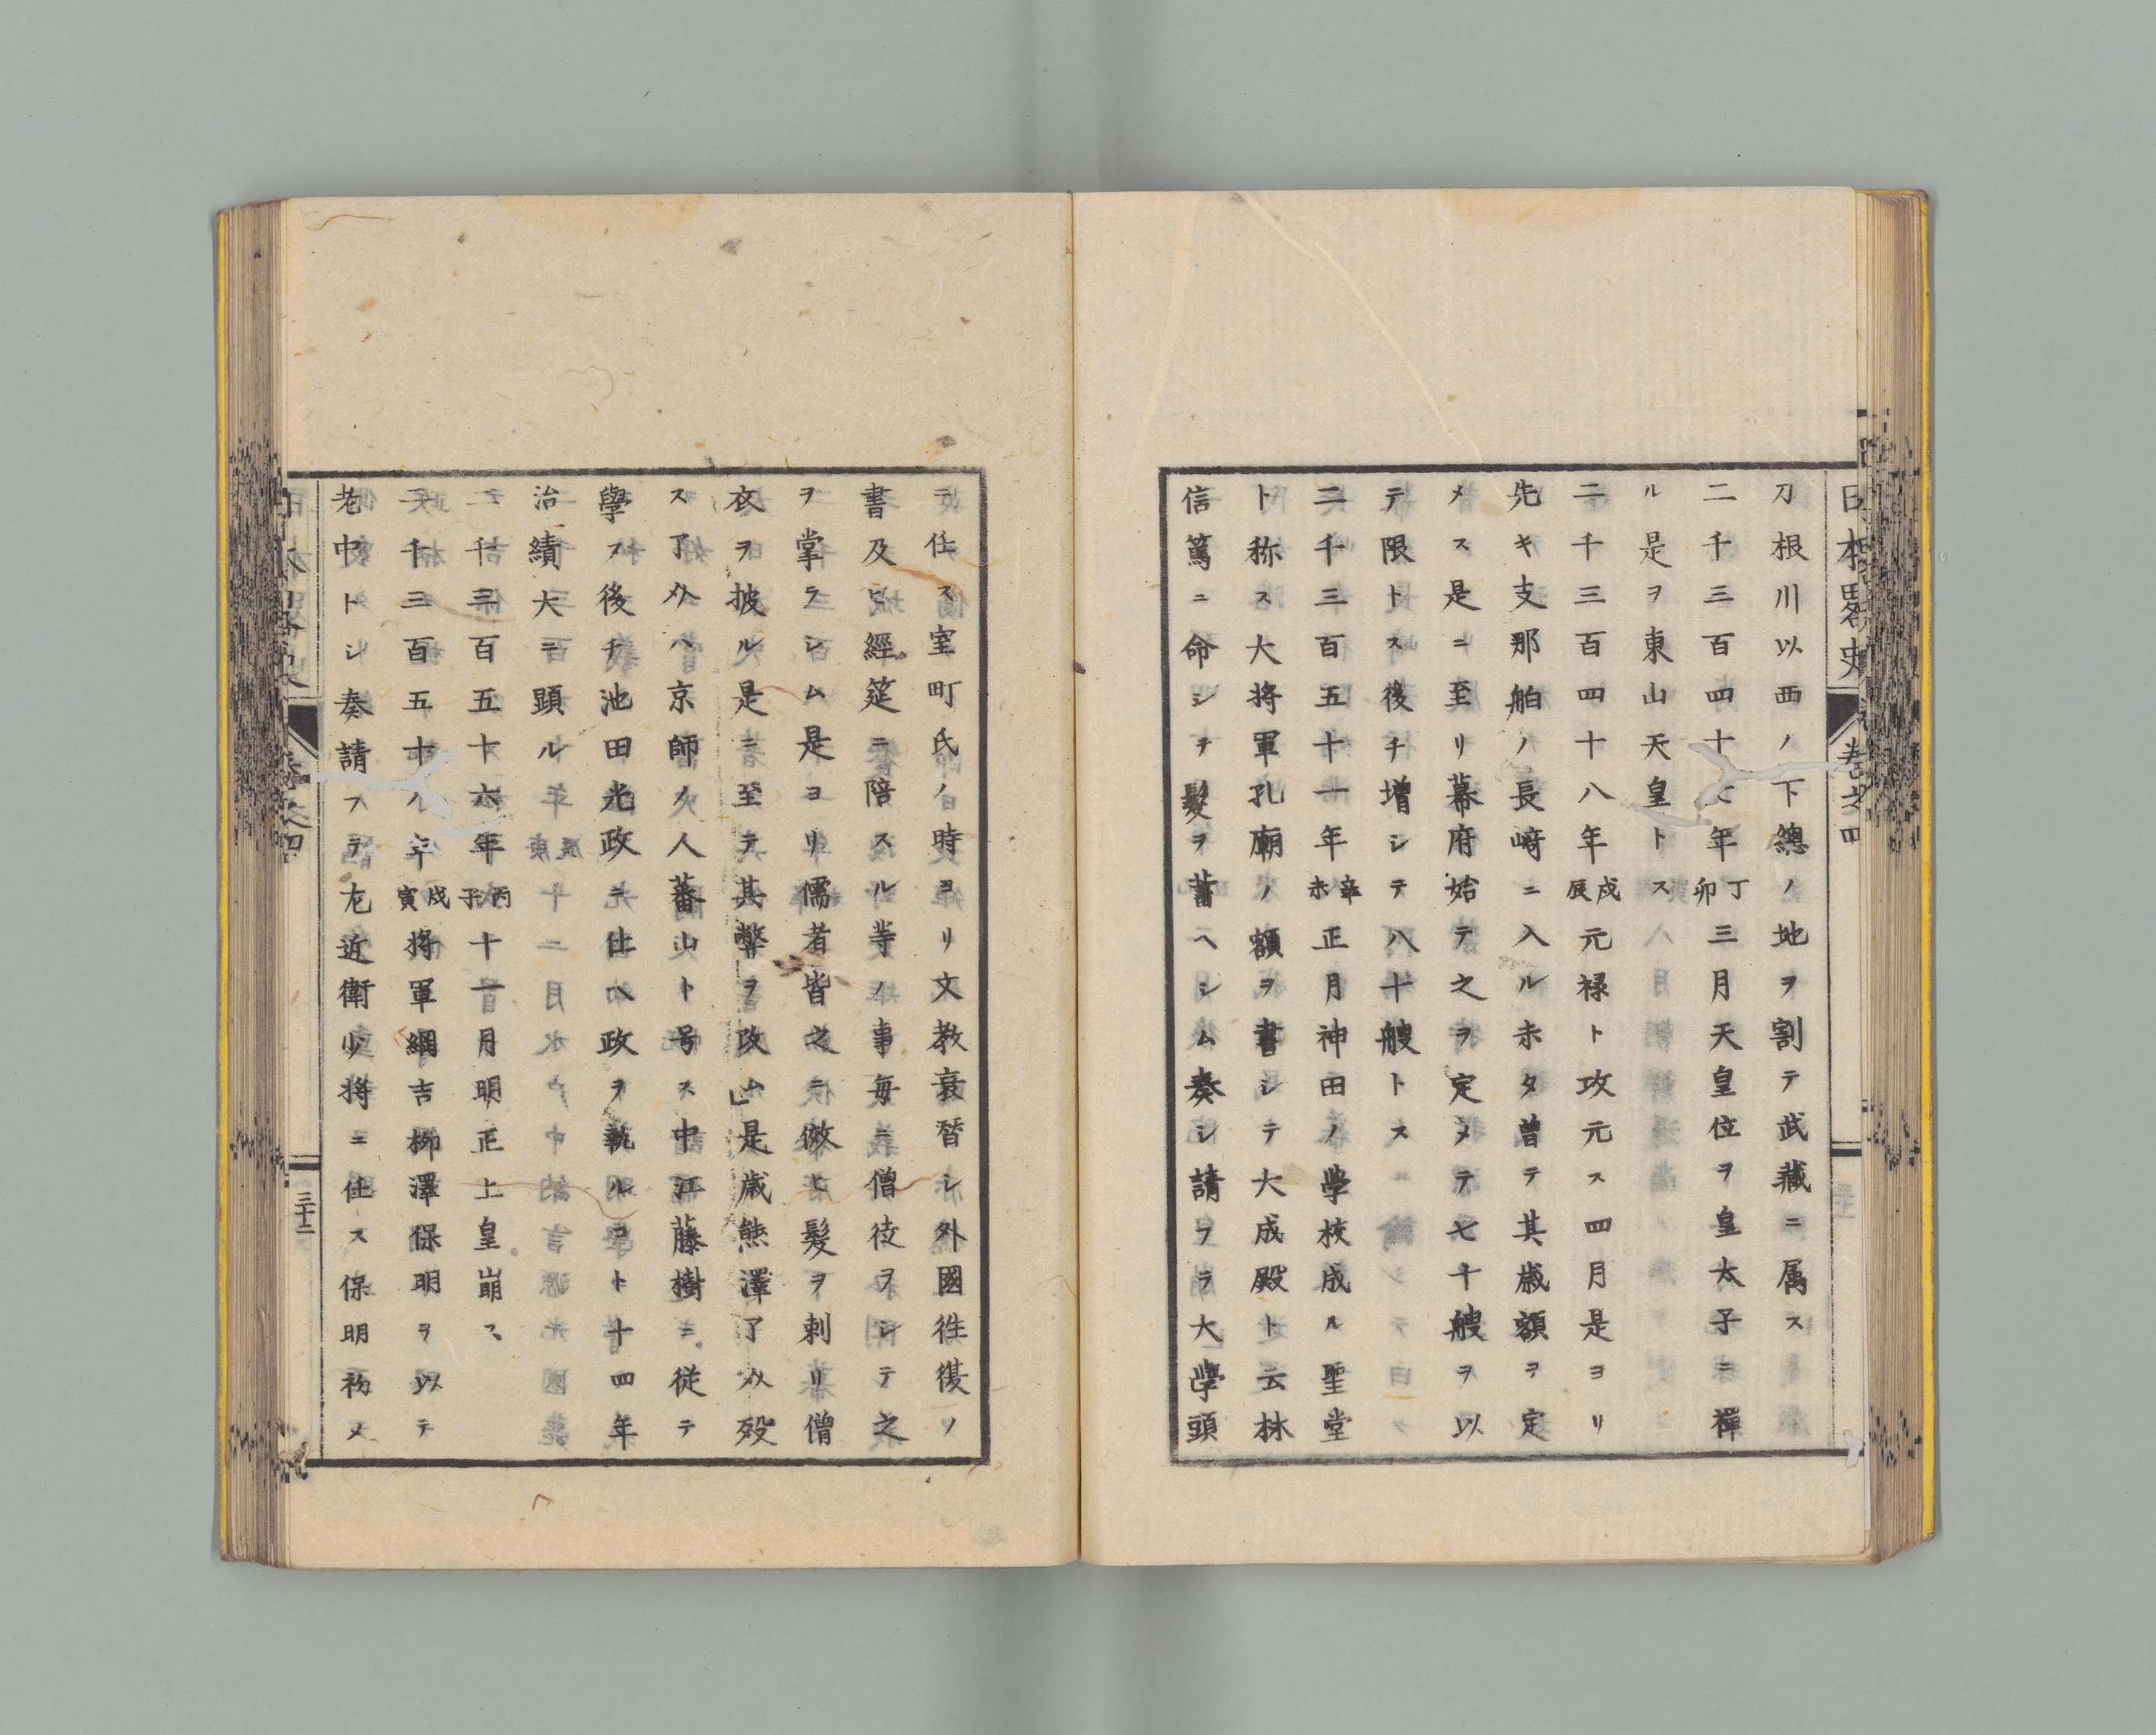 日本畧史 卷之四
刀根川以西ノ下總ノ地ヲ割テ武藏ニ属ス
二千三百四十七年丁卯三月天皇位ヲ皇太子ニ禪
ル是ヲ東山天皇トス
二千三百四十八年戊辰元禄ト攺元ス四月是ヨリ
先キ支那舶ノ長﨑ニ入ル未タ曽テ其歳額ヲ定
メス是ニ至リ幕府始テ之ヲ定メテ七十艘ヲ以
テ限トス後チ増シテ八十艘トス
二千三百五十一年辛未正月神田ノ學校成ル聖堂
ト称ス大将軍孔廟ノ額ヲ書シテ大成殿ト云林
信篤ニ命シテ髮ヲ蓄ヘシム奏シ請フラ大學頭
ニ任ス室町氏ノ時ヨリ文教衰替シ外國徃復ノ
書及ヒ經筵ニ陪スル等ノ事毎ニ僧徒ヲシテ之
ヲ掌ラシム是ヨリ儒者皆之ニ倣ヒ髮ヲ剃リ僧
衣ヲ披ル是ニ至テ其弊ヲ改ム是歳熊澤了介殁
ス了介ハ京師ノ人蕃山ト号ス中江藤樹ニ従テ
學フ後チ池田光政ニ仕ヘ政ヲ執ルコト十四年
治績大ニ顕ル
二千三百五十六年丙子十一月明正上皇崩ス
二千三百五十八年戊寅将軍綱吉柳澤保明ヲ以テ
老中トシ奏請フテ左近衛少将ニ任ス保明初メ
日本畧史 卷之四 三十二